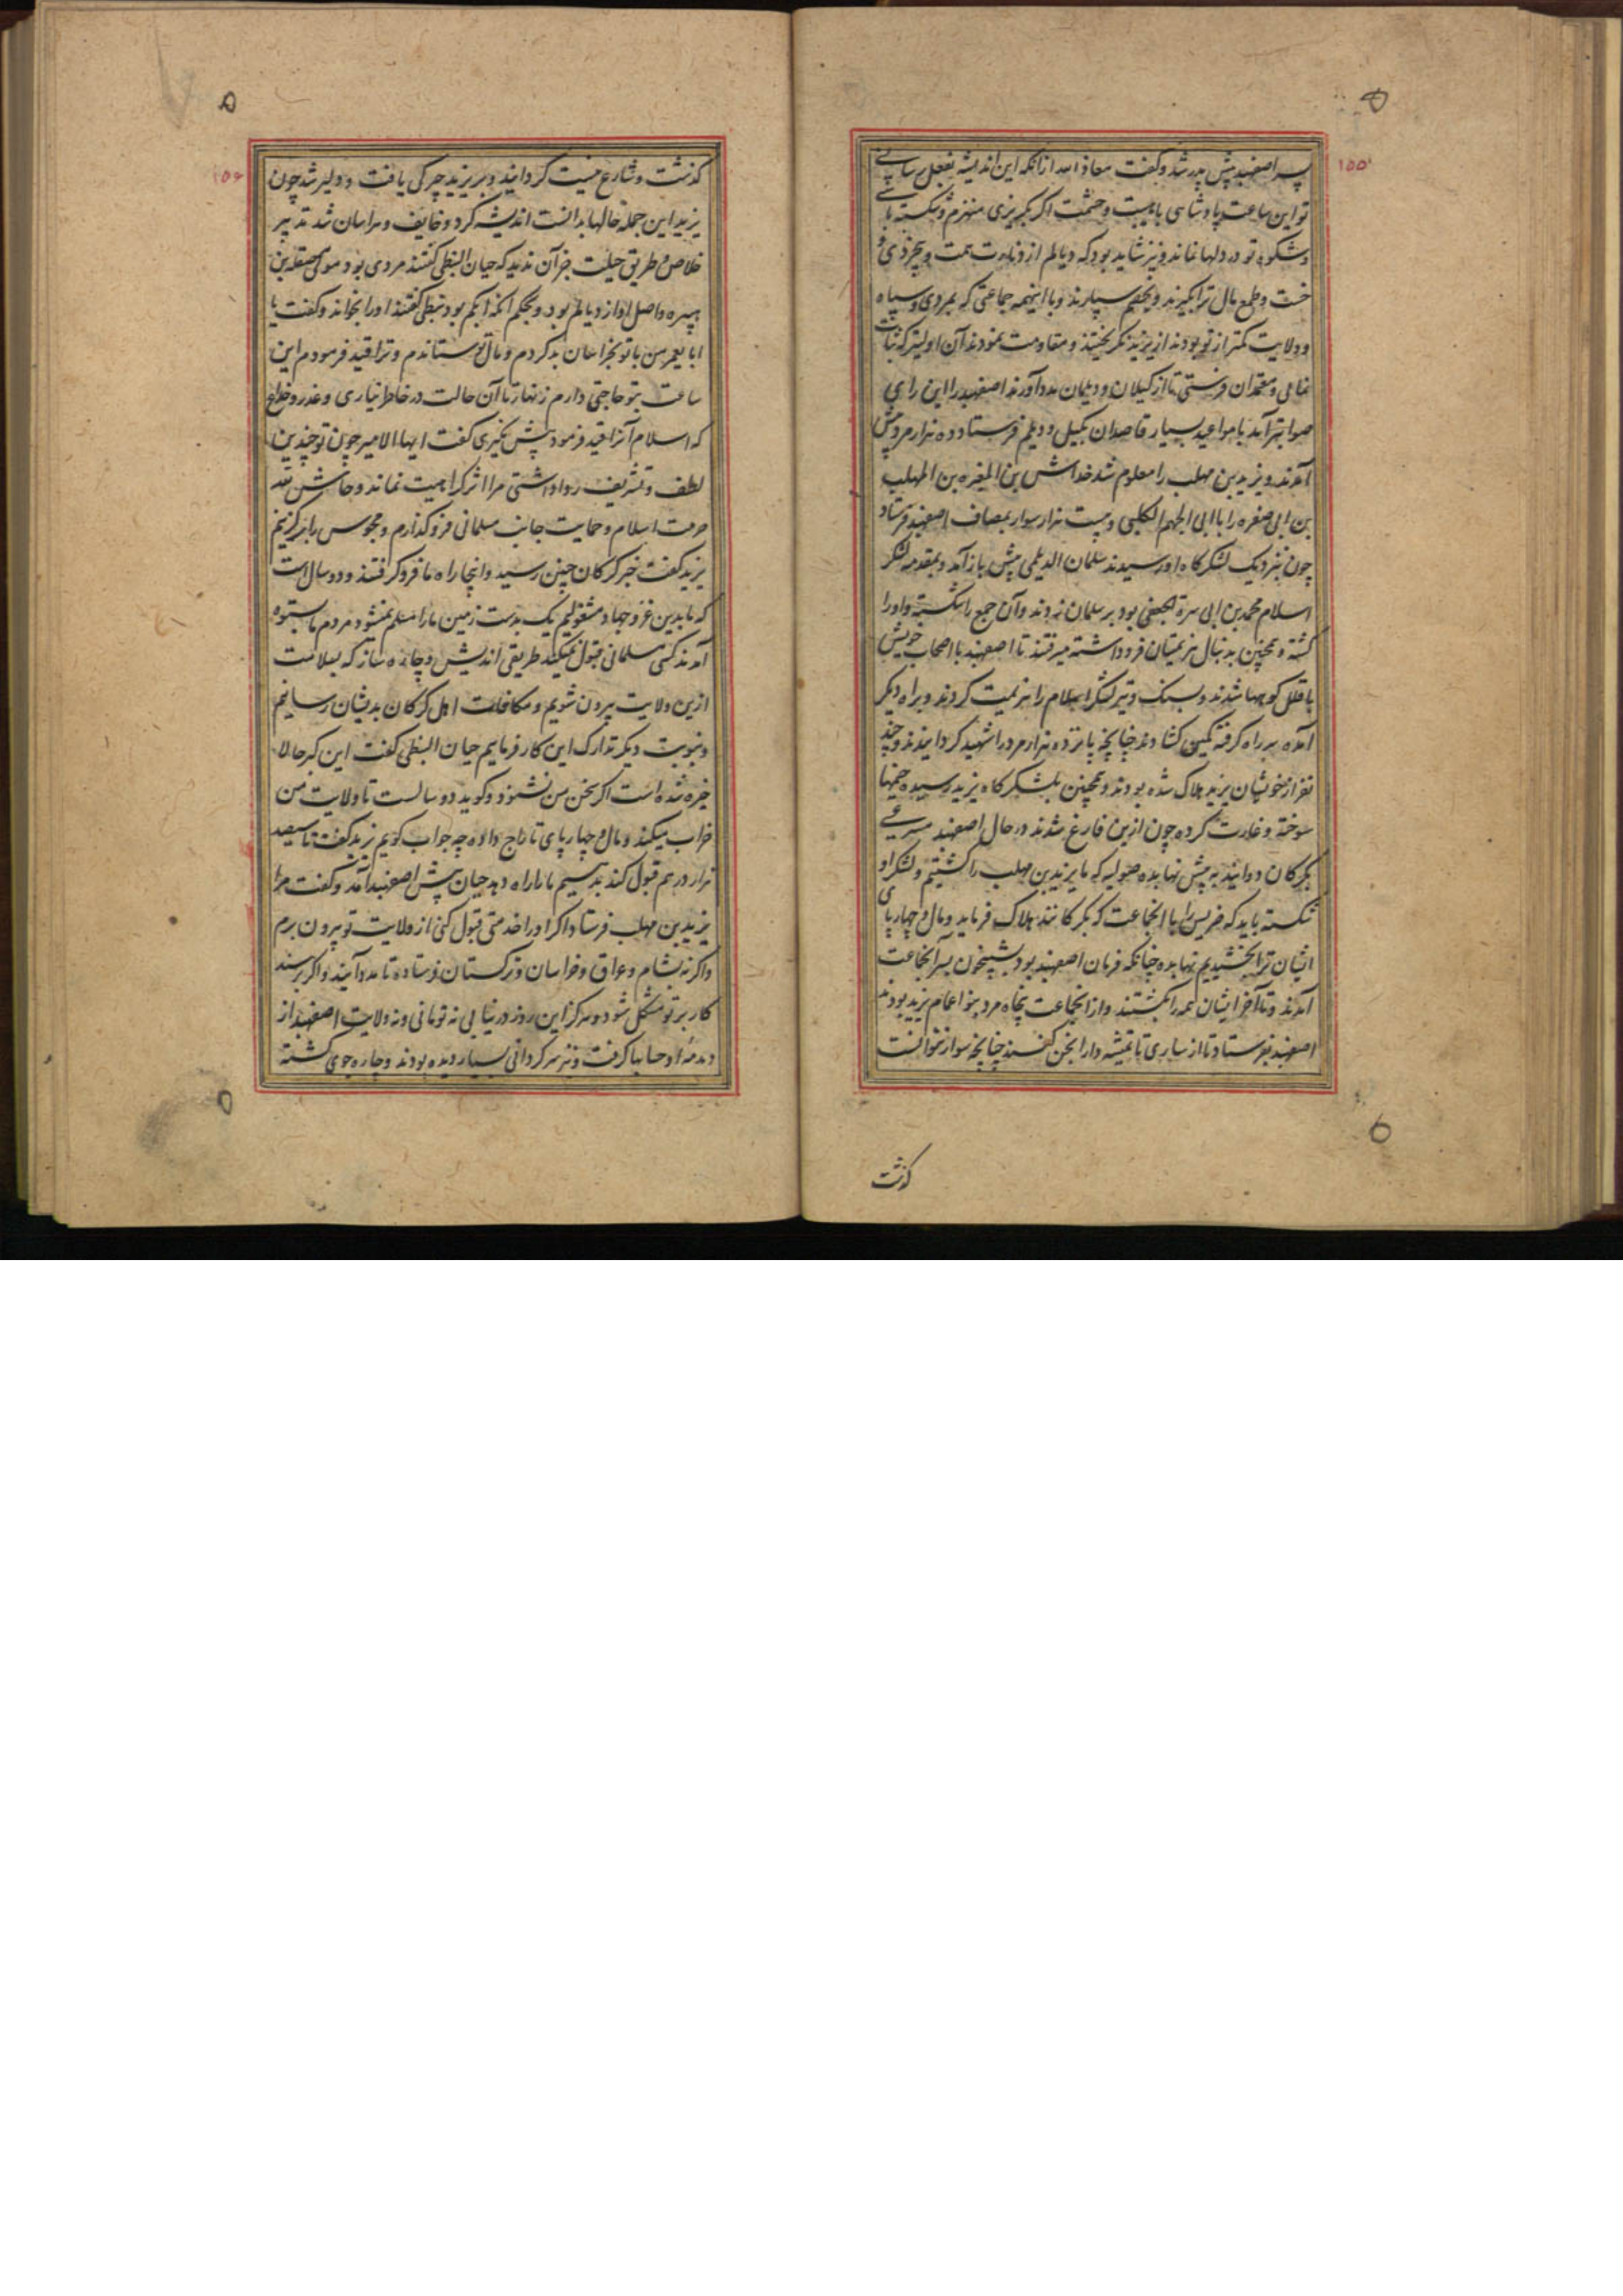 ۱۵۵
پسر اصفهبد پیش پدر شد و گفت معاذ الله از انکه این اندیشه بفعل رسانی
تو این ساعت پادشاهی با هیبت و حشمت اگر بگریزی منهزم و شکسته باشی
و شکوه تو در دلها نماند و نیز شاید بود که دیالم از دناءت همت و بیخردی و
خست و طمع مال ترا بگیرند و بخصم سپارند و با اینهمه جماعتی که بمردی و سپاه
و ولایت کمتر از تو بودند از یزید نگریختند و مقاومت نمودند آن اولیتر که ثبات
نمایی و معتمدان فرستی تا از گیلان و دیلمان مدد آورند اصفهبد را این رای
صوابتر آمد با مواعید بسیار قاصدان بگیل و دیلم فرستاد و ده هزار مرد پیش
آمدند و یزید بن مهلب را معلوم شد خداش بن المغیره بن المهلب
بن ابی صفره را با ابی الجهم الکلبی و بیست هزار سوار بمصاف اصفهبد فرستاد
چون بنزدیک لشکرگاه او رسیدند سلمان الدیلمی پیش باز آمد و بمقدمه لشکر
اسلام محمد بن ابی سبرة الجعفی بود بر سلمان زدند و آن جمع را شکسته و او را
کشته و همچنین بدنبال هزیمتیان فرو داشته میرفتند تا اصفهبد با اصحاب خویش
با قلل کوهها شدند و بسنگ و تیر لشکر اسلام را هزیمت کردند و براه دیگر
آمده سر راه گرفته کمین گشادند چنانچه پانزده هزار مرد را شهید گردانیدند و چند
نفر از خویشان یزید هلاک شده بودند و همچنین بلشکرگاه یزید رسیده خیمها
سوخته و غارت کرده چون ازین فارغ شدند در حال اصفهبد مسرعی
بگرگان دوانید به پیش نهابده صولیه که ما یزید بن مهلب را کشتیم و لشکر او
شکسته باید که ضریس را با انجماعت که بگرگانند هلاک فرماید و مال و چهارپای
ایشان ترا بخشیدیم نهابده چنانکه فرمان اصفهبد بود بشبیخون بسر انجماعت
آمدند و تا آخر ایشان همه را بکشتند و از انجماعت پنجاه مرد بنو اعمام یزید بودند
اصفهبد بفرستاد تا از ساری تا تمیشه دارابخن کنند چنانچه سوار نتوانست
گذشت
۱۵۶
گذشت و شارع نیست گردانید و بر یزید چرگی یافت و دلیر شد چون
یزید این جمله حالها بدانست اندیشه کرد و خایف و هراسان شد تدبیر
خلاص و طریق حیلت جز آن ندید که حیان النبطی گفتند مردی بود مولی مصقله بن
هبیره و اصل او از دیالم بود و بحکم انکه ابکم بود نبطی گفتند او را بخواند و گفت یا
ابا یعمر من با تو بخراسان بد کردم و مال تو ستاندم و ترا قید فرمودم این
ساعت بتو حاجتی دارم زنهار تا آن حالت در خاطر نیاری و غدر و خداع
که اسلام آنرا قید فرمود پیش نگیری گفت ایها الامیر چون تو چندین
لطف و تشریف روا داشتی مرا اثر کراهیت نماند و حاش لله
حرمت اسلام و حمایت جانب مسلمانی فرو گذارم و مجوس را برگزینم
یزید گفت خبر گرگان چنین رسید و اینجا راه ما فرو گرفتند و دو سال است
که ما بدین غزو جهاد مشغولیم یک بدست زمین ما را مسلم نمیشود مردم ما بستوه
آمدند کسی مسلمانی قبول نمیکند طریقی اندیش و چاره ساز که بسلامت
ازین ولایت بیرون شویم و مکافات اهل گرگان بدیشان رسانیم
و بنوبت دیگر تدارک این کار فرماییم حیان النبطی گفت این گبر حالا
خیره شده است اگر سخن من نشنود و گوید دو سالست تا ولایت من
خراب میکند و مال و چهارپای تاراج داده چه جواب گویم یزید گفت تا سیصد
هزار درهم قبول کند بدهیم تا ما را راه دهد حیان پیش اصفهبد آمد و گفت مرا
یزید بن مهلب فرستاد اگر او را خدمتی قبول کنی از ولایت تو بیرون برم
و اگر نه بشام و عراق و خراسان و ترکستان فرستاده تا مدد آیند و اگر برسند
کار بر تو مشکل شود و هرگز این روز در نیابی نه تو مانی و نه ولایت اصفهبد از
دمدمه او حسابها گرفت و نیز سرگردانی بسیار دیده بودند و چاره جوی گشته